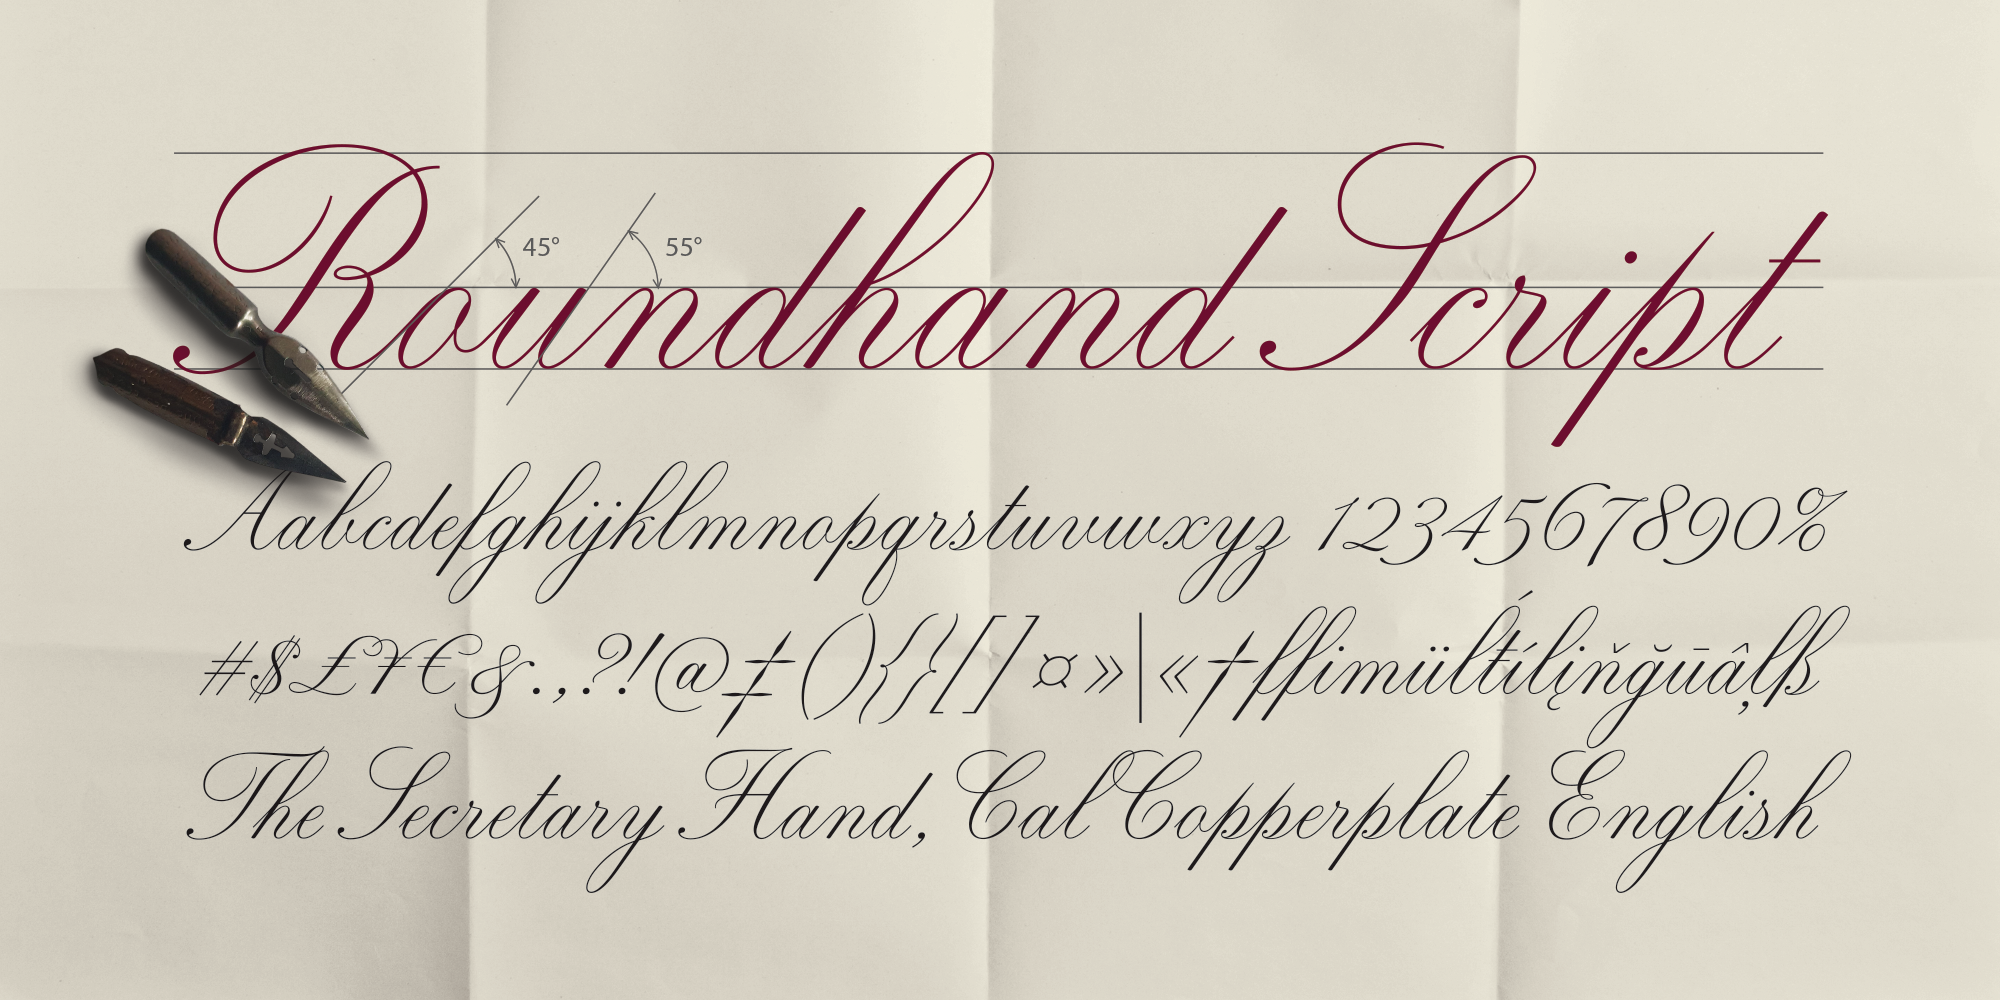 Roundhand Script
45° 55°
Aabcdefghijklmnopqrstuvwxyz 1234567890%
#$£¥€&.,?!@‡(){}[]¤»|«†ffimültílįňğūâ,lß
The Secretary Hand, Cal Copperplate English